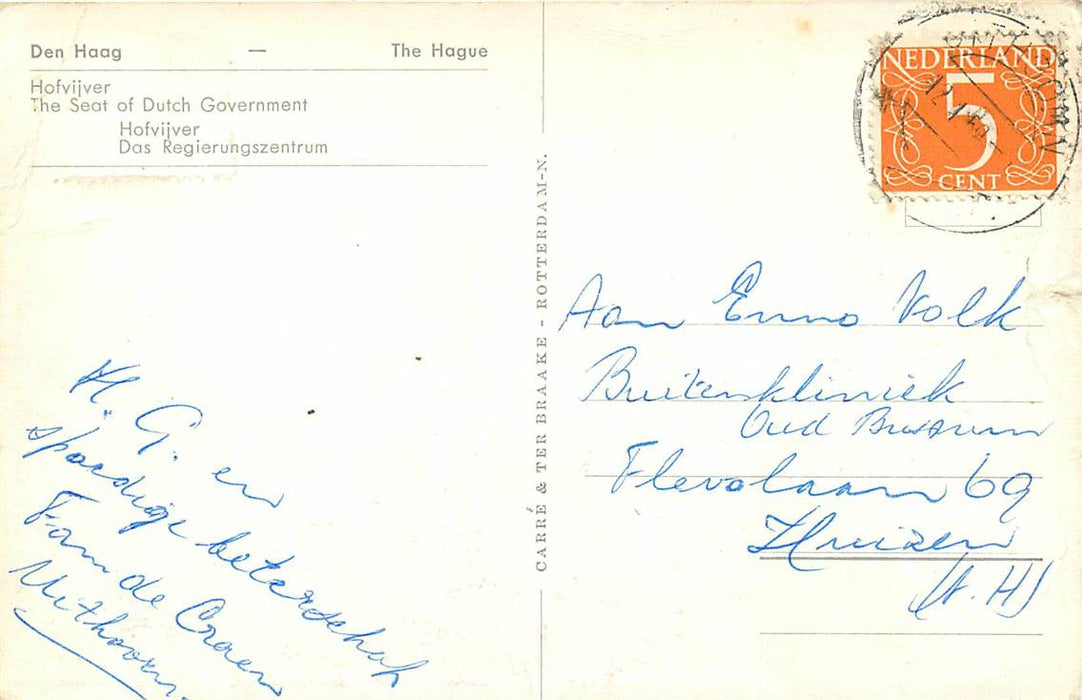 Den Haag — The Hague
Hofvijver
The Seat of Dutch Government
Hofvijver
Das Regierungszentrum
CARRÉ & TER BRAAKE - ROTTERDAM-N.
NEDERLAND
5
CENT
Aan Enno Volk
Buitenkliniek
Oud Bussum
Flevolaan 69
Huizen
(N.H)
H. G. en
spoedige beterschap
Fam de Graen
Uithoorn